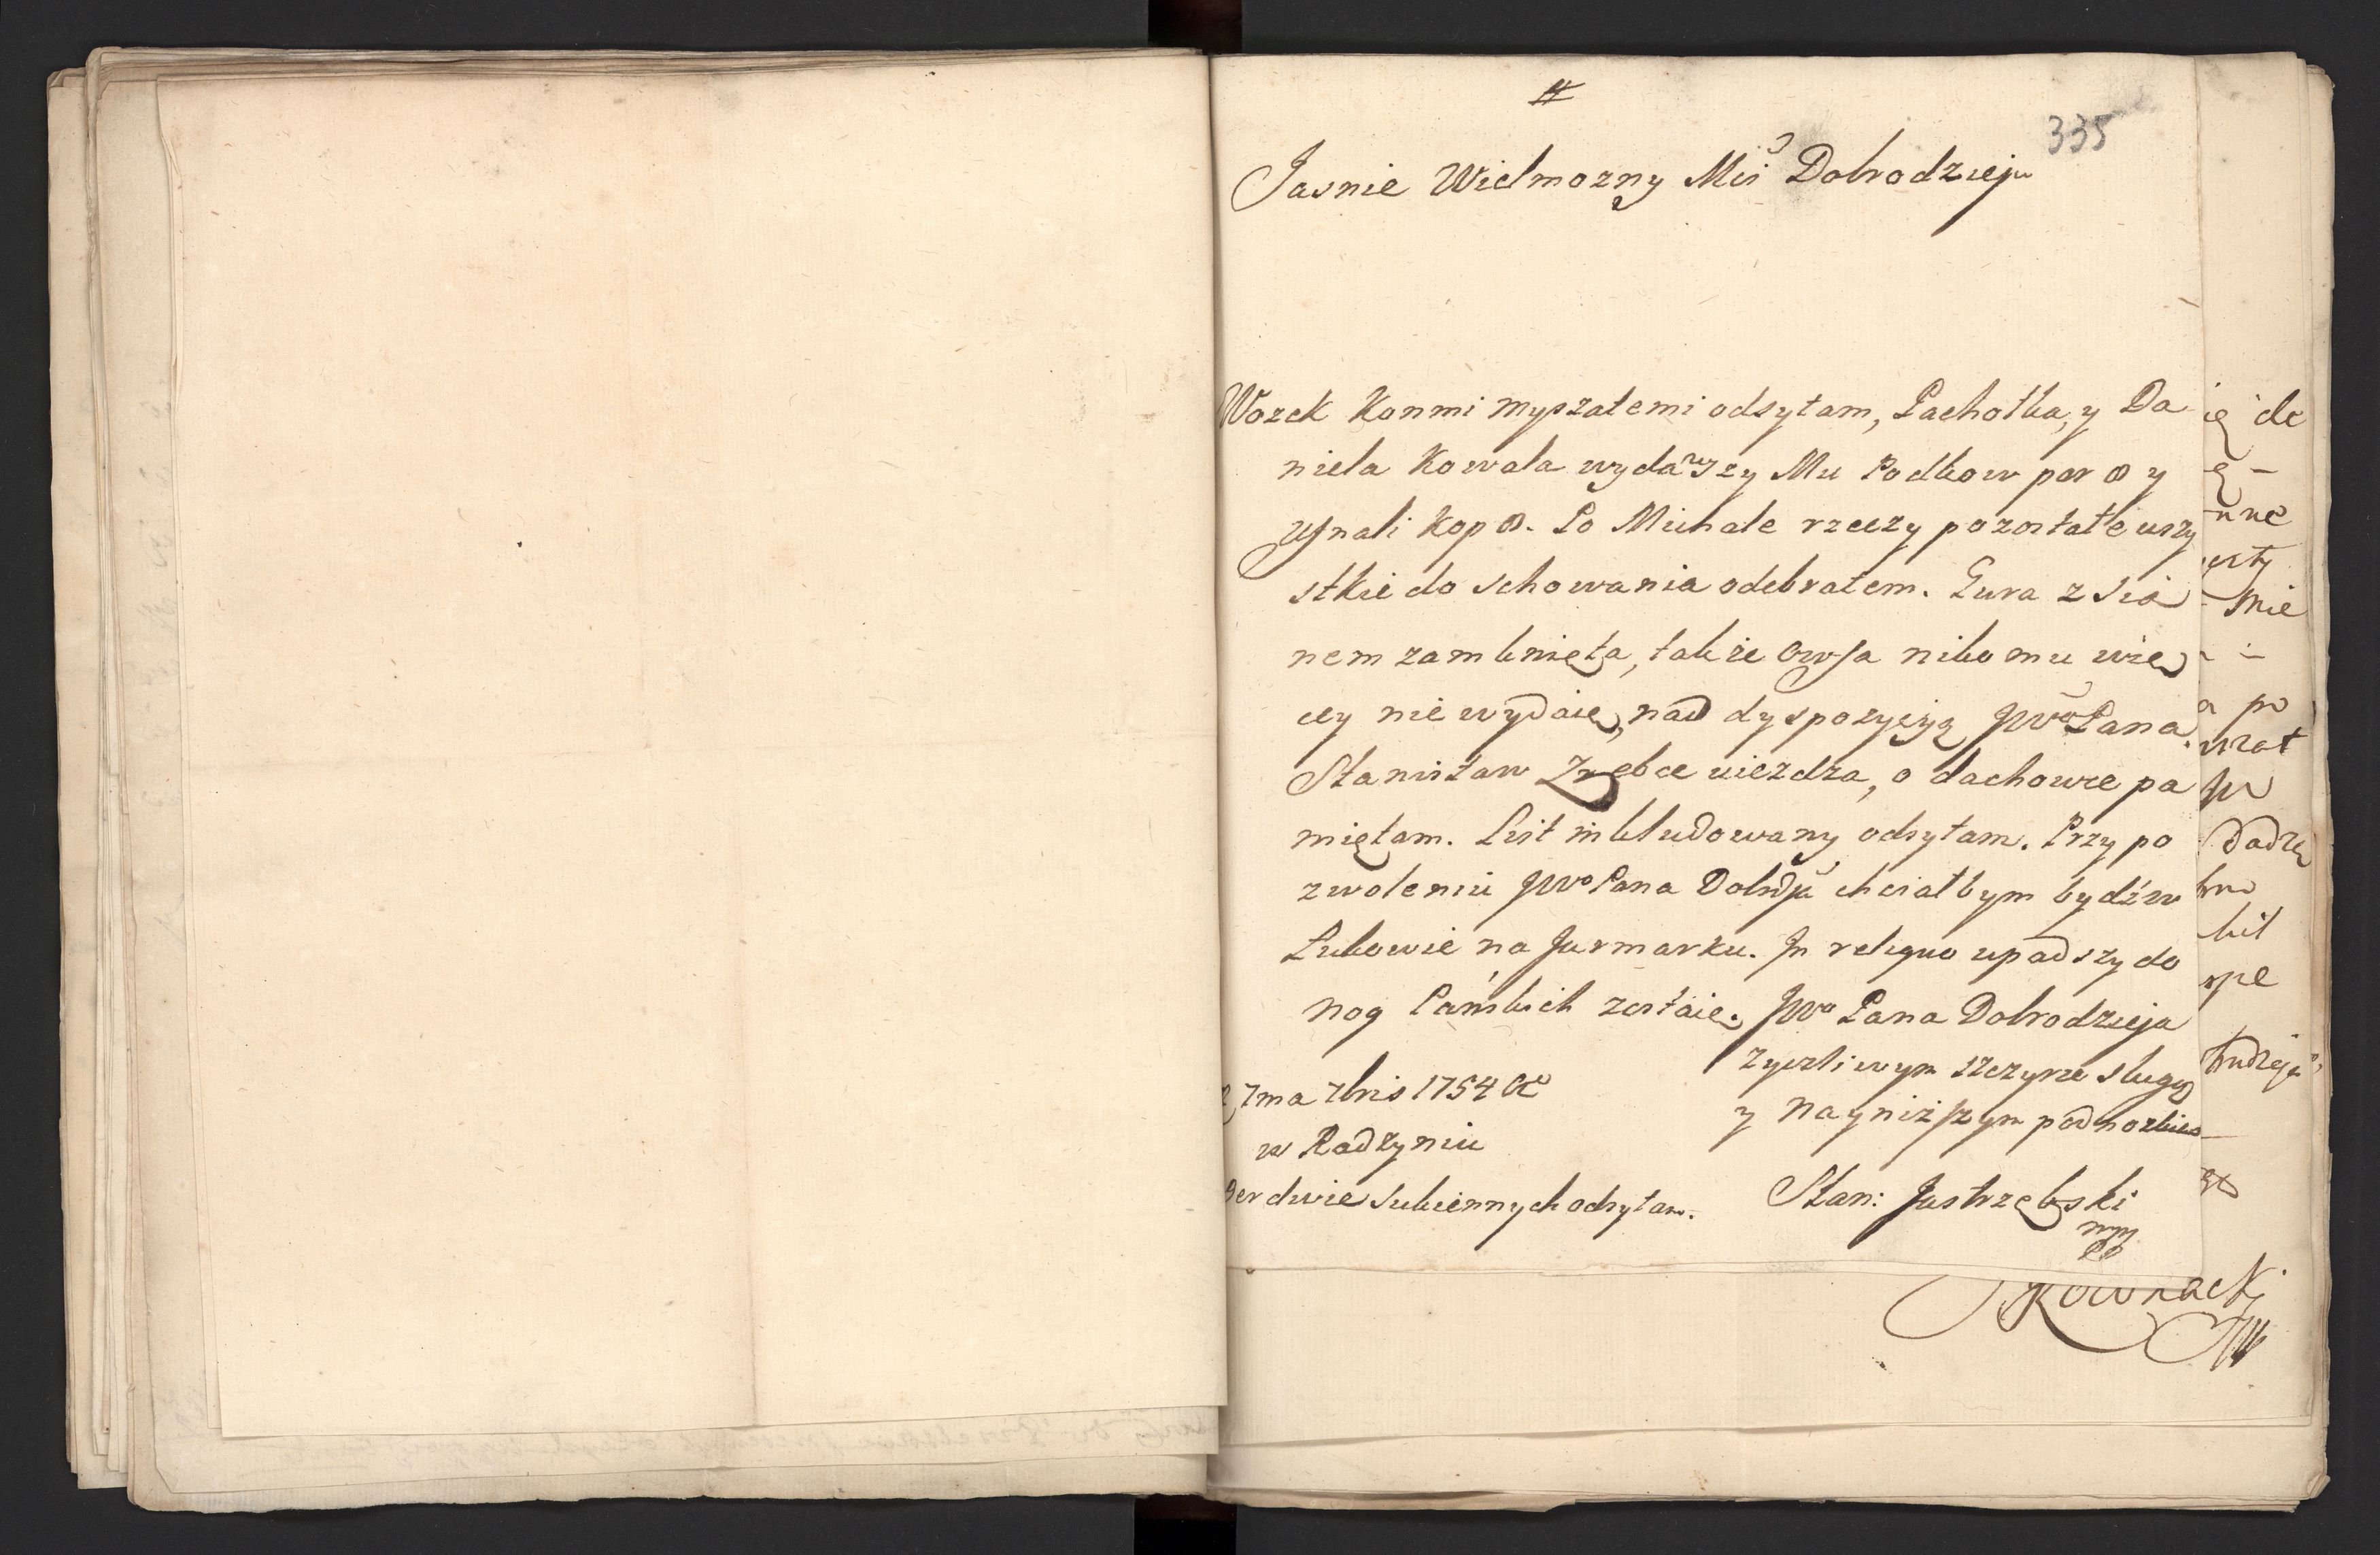 #
335
Jasnie Wielmozny Mći Dobrodzieju
Wozek Konmi myszatemi odsyłam, Pachołka, y Da
niela Kowala wydawszy Mu Podkow par 8 y
Ufnali Kop 8. Po Michale rzeczy pozostałe wszy
stkie do schowania odebrałem. Gura z sia
nem zamknięta, także Owsa nikomu wię
cey nie wydaię, nad dyspozycyą JWo Pana.
Stanisław Zrebce uiezdza, o dachowce pa
miętam. List inkludowany odsyłam. Przy po
zwoleniu JWo Pana Dobrdźa chciałbym bydź w
Łukowie na Jarmarku. In reliquo upadszy do
nog Pańskich zostaię. JWo Pana Dobrodzieja
zyczliwym szczyrze sługą
y nayniższym podnozkiem
7ma 7bris 1754
w Radzyniu
Ser dwie Sukiennych odsyłam.
Stan: Jastrzębski
mp
ię de
ę -
nne
erty
mie
a po
wrat
JW
Dadzą
bil
spe
Kownacki